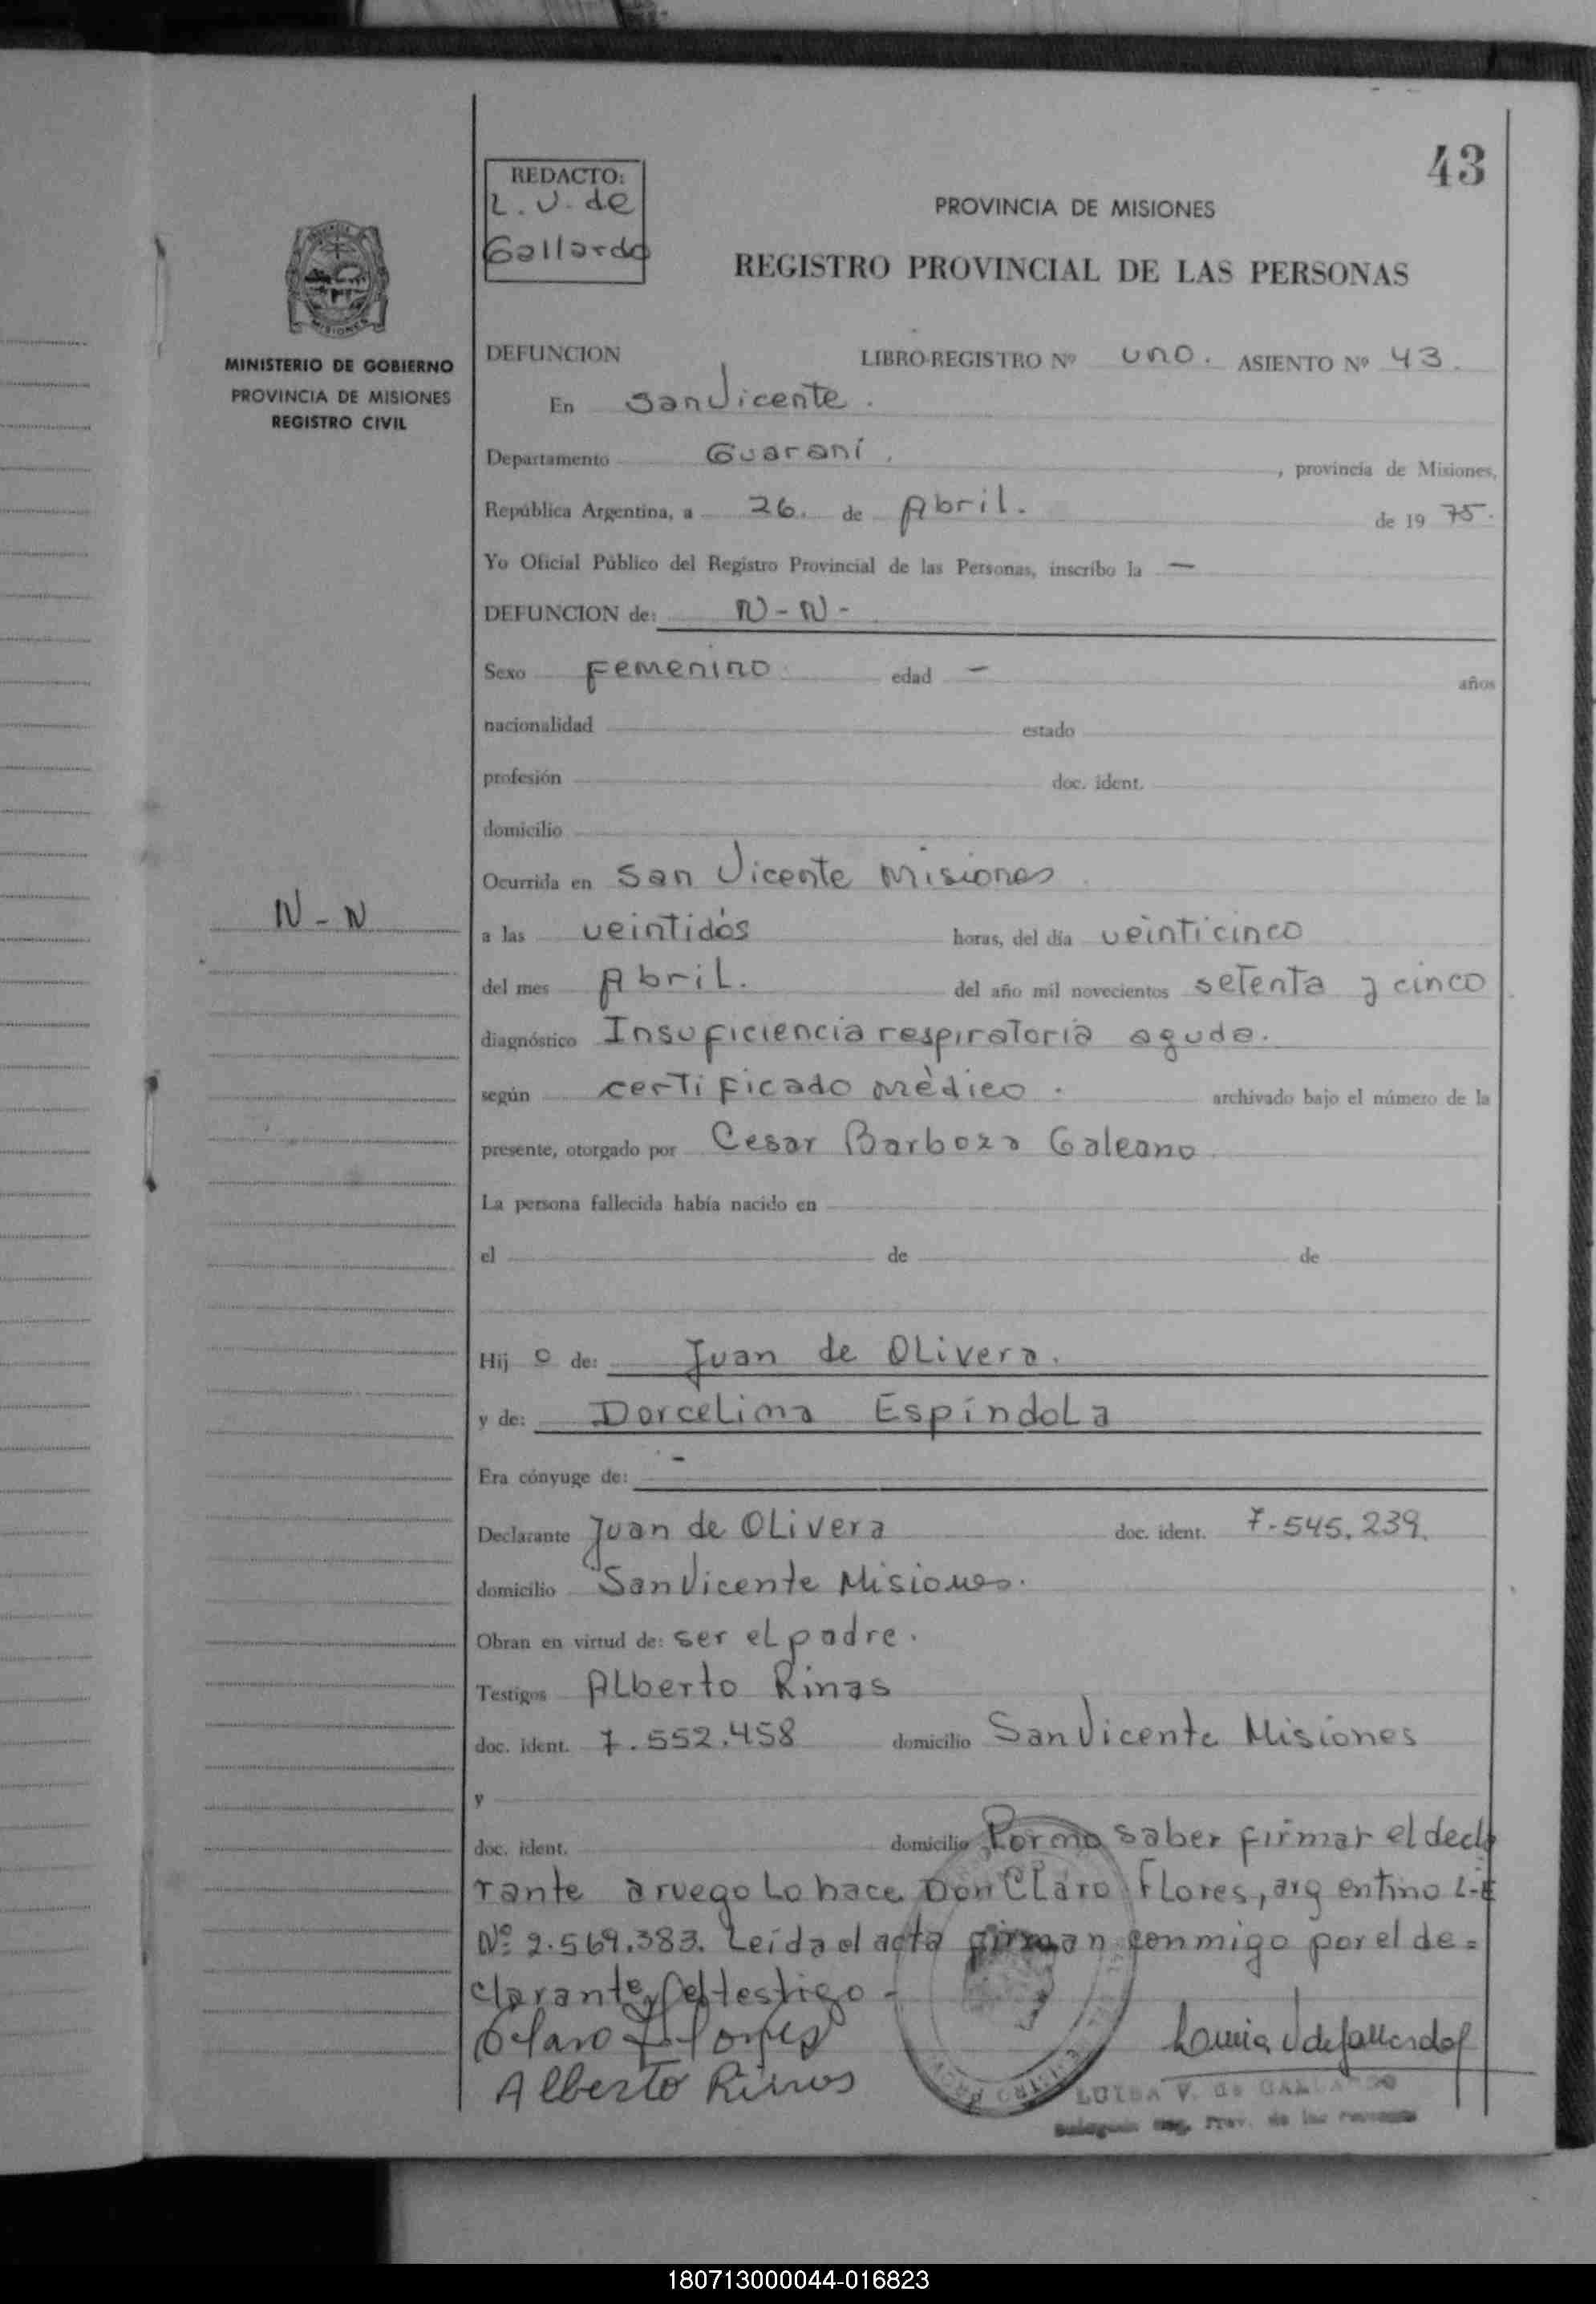 43
REDACTO:
L. V. de
Gallardo
PROVINCIA DE MISIONES
REGISTRO PROVINCIAL DE LAS PERSONAS
MINISTERIO DE GOBIERNO
PROVINCIA DE MISIONES
REGISTRO CIVIL
DEFUNCION LIBRO-REGISTRO Nº uno. ASIENTO Nº 43.
En San Vicente.
Departamento Guaraní, , provincia de Misiones,
República Argentina, a 26. de Abril. de 19 75.
Yo Oficial Público del Registro Provincial de las Personas, inscribo la —
DEFUNCION de: N-N-
Sexo Femenino edad - años
nacionalidad estado
profesión doc. ident.
domicilio
Ocurrida en San Vicente Misiones
N-N
a las veintidós horas, del día veinticinco
del mes Abril. del año mil novecientos setenta y cinco
diagnóstico Insuficiencia respiratoria aguda.
según certificado mèdico. archivado bajo el número de la
presente, otorgado por Cesar Barboza Galeano
La persona fallecida había nacido en
el de de
Hij o de: Juan de Olivera.
y de: Dorcelima Espíndola
Era cónyuge de: -
Declarante Juan de Olivera doc. ident. 7.545.239.
domicilio San Vicente Misiones.
Obran en virtud de: ser el padre.
Testigos Alberto Rinas
doc. ident. 7.552.458 domicilio San Vicente Misiones
y
doc. ident. domicilio Por no saber firmar el decla
rante a ruego lo hace Don Claro Flores, argentino L-E
Nº: 2.569.383. Leída el acta firman conmigo por el de=
clarante y el testigo-
Claro Flores
Alberto Rinas
LUISA V. de GALLARDO
Delegada Reg. Prov. de las Personas
180713000044-016823